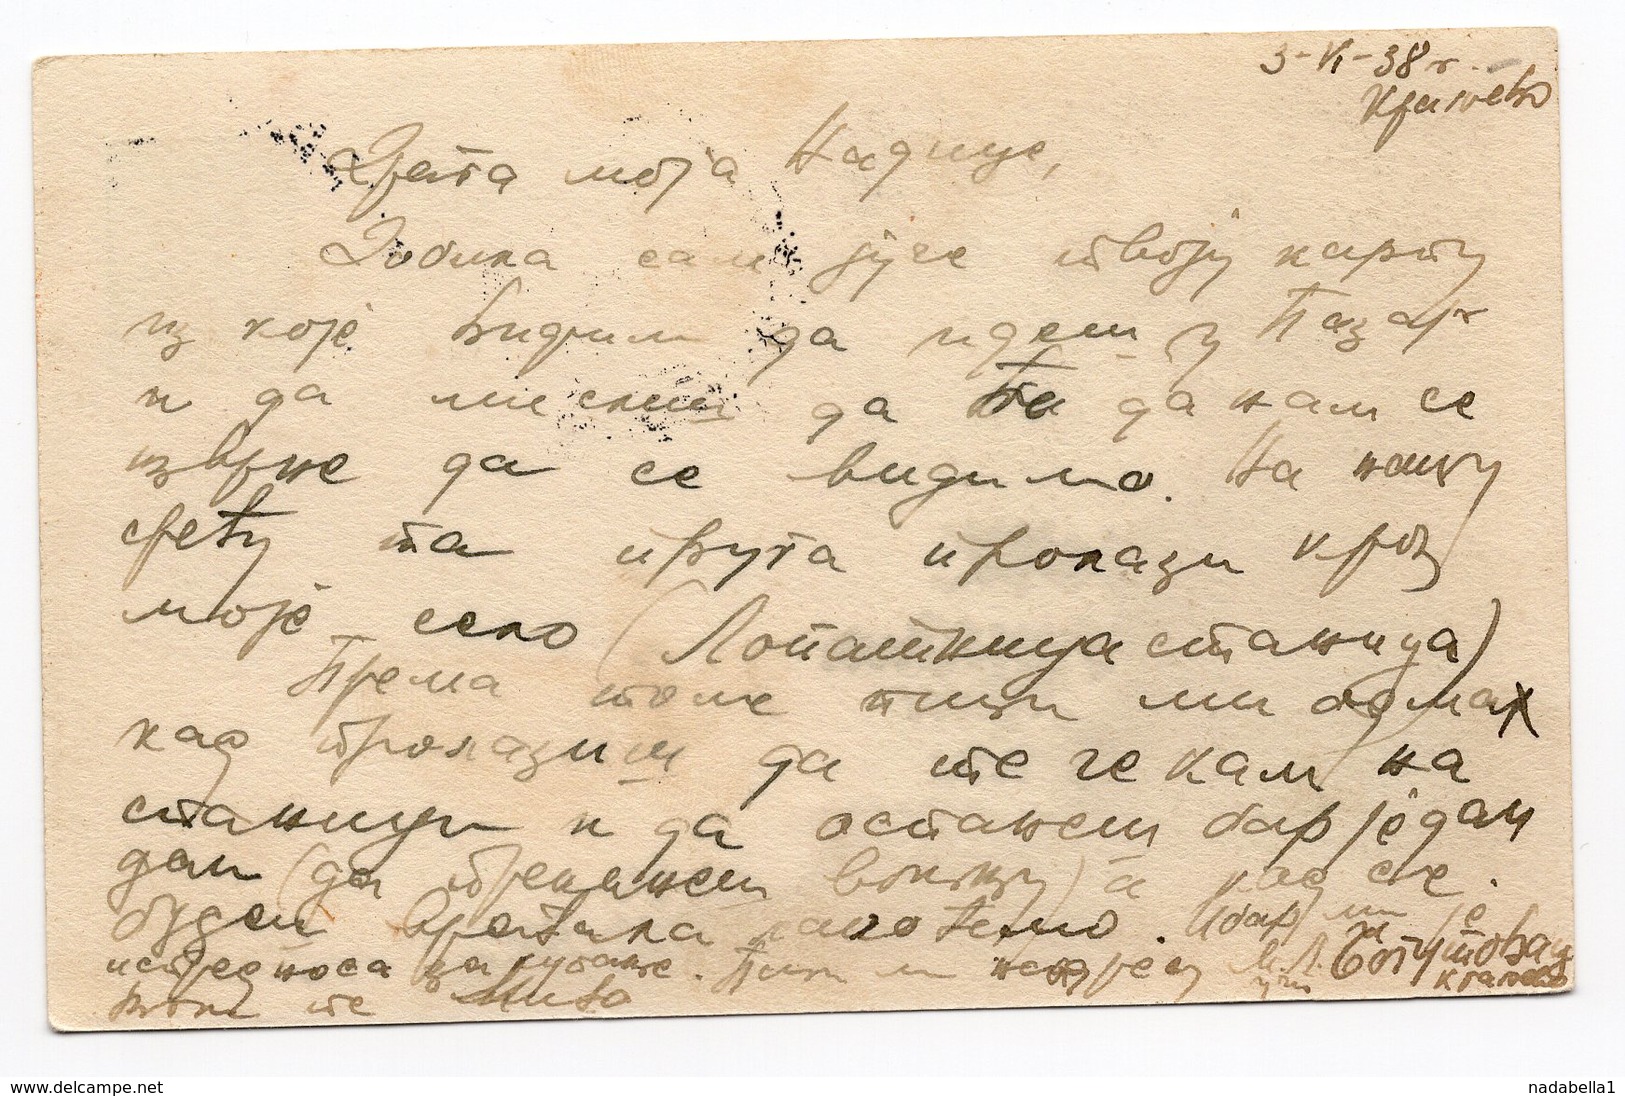 3-VI-38 г.
Краљево
Драга моја Надице,
Добила сам јуче твоју карту
из које видим да идеш у Пазар
и да мислиш да ће да нам се
изврне да се видимо. На нашу
срећу та пруга пролази кроз
моје село (Лопатница станица)
Према томе пиши ми одмах
кад пролазиш да те чекам на
станици и да останеш бар један
дан (да прекинеш вожњу) а кад се
будеш вратила лако ћемо. бар ми је
испред носа за купање. Пиши ми М.Л.
воли те Мица
Краљево
www.delcampe.net
nadabella1